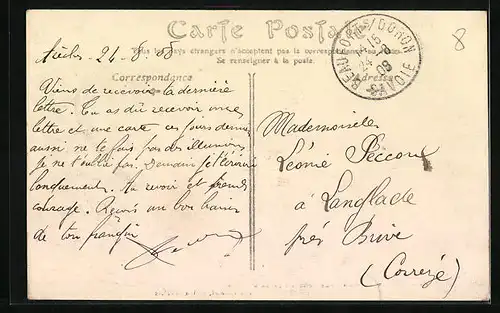 Carte Postale
Tous les pays étrangers n'acceptent pas la correspondance au
Se renseigner à la poste.
Correspondance
Adresse
8
BEAUFORT S/DORON
15
24 -8
09
SAVOIE
24-8-
Viens de recevoir ta dernière
lettre. Tu as dû recevoir une
lettre et une carte ces jours
aussi ne te fais pas des illusions
je ne t'oublie pas. Demain je t'écrirai
longuement. Au revoir et prends
courage. Reçois un bon baiser
de ton
Mademoiselle
Léonie
à Langlade
près Brive
(Corrèze)